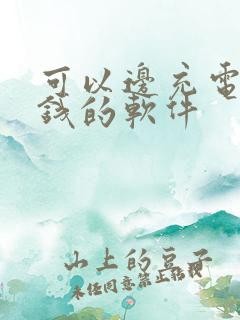 可以邊充電
錢的軟件
山上的豆子
未经同意禁止转载